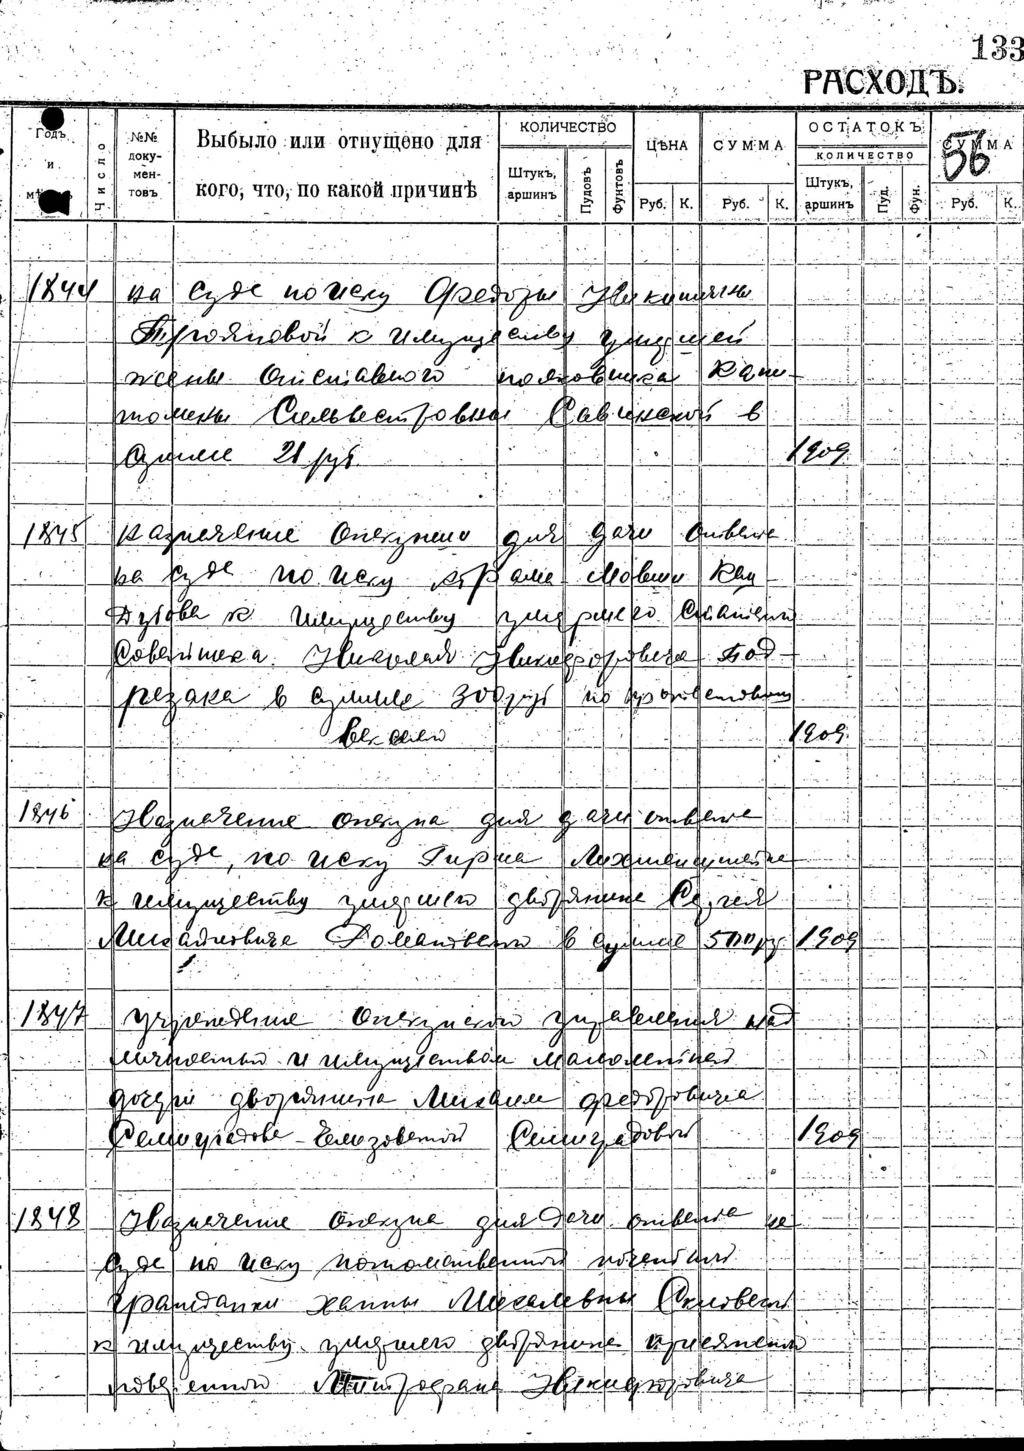 133
РАСХОДЪ.
56
Годъ и мѣсяцъ
Число
№№ документовъ
Выбыло или отпущено для
кого, что, по какой причинѣ
КОЛИЧЕСТВО
Штукъ, аршинъ
Пудовъ
Фунтовъ
ЦѢНА
Руб. К.
СУММА
Руб. К.
ОСТАТОКЪ
КОЛИЧЕСТВО
Штукъ, аршинъ
Пуд.
Фун.
СУММА
Руб. К.
1844 на суде по иску Федоры Никитичны
Трояновой к имуществу умершей
жены отставного полковника Капи-
толины Сильвестровны Савинской в
сумме 21 руб. 1909
1845 Назначение опекуна для дачи ответа
на суде по иску Абрама Мовши
к имуществу умершего Статского
Советника Николая Никифоровича Под-
резака в сумме 300 руб по протестованному
векселю 1909
1846 Назначение опекуна для дачи ответа
на суде, по иску Гирша Лихтенштейна
к имуществу умершего дворянина Сергея
Михайловича Романовского в сумме 500 ру 1909
1847 учреждение опекунского управления над
личностью и имуществом малолетней
дочери дворянина Михаила Федоровича
Семиградова - Елизаветой Семиградовой 1909
1848 Назначение опекуна для дачи ответа на
суде по иску потомственной почетной
гражданки Ханны
к имуществу умершего дворянина присяжного
поверенного Митрофана Никифоровича